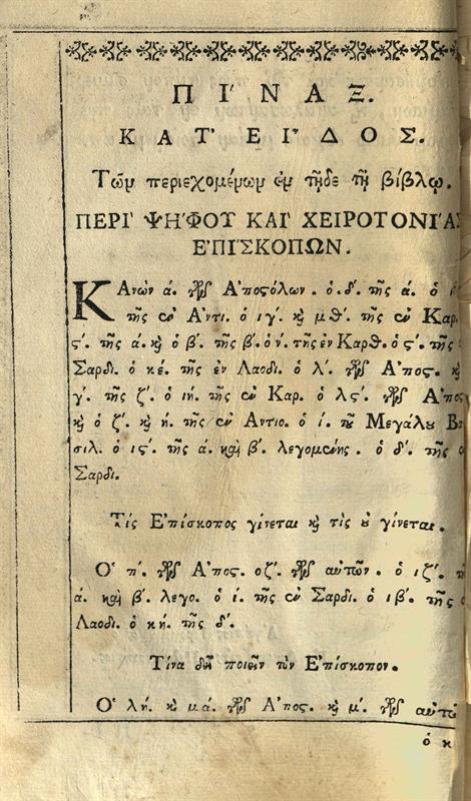 ΠΙ΄ΝΑΞ.
ΚΑΤ' ΕΙ῏ΔΟΣ.
Τῶν περιεχομένων ἐν τῇδε τῇ βίβλῳ.
ΠΕΡΙ' ΨΗ'ΦΟΥ ΚΑΙ' ΧΕΙΡΟΤΟΝΙ'ΑΣ
Ε'ΠΙΣΚΟΠΩΝ.
ΚΑνὼν ά. τῶν Α'ποςόλων. ὁ. δ'. τῆς ά. ὁ
τῆς ἐν Αντι. ὁ ιγ'. κ̀ μθ'. τῆς ἐν Καρ.
ς'. τῆς ά. κ̀ ὁ β'. τῆς β'. ὁ ν'. τῆς ἐν Καρθ. ὁ ς'. τῆς
Σαρδι. ὁ κέ. τῆς ἐν Λαοδι. ὁ λ'. τῶν Α'πος. κ̀
γ'. τῆς ζ'. ὁ ιή. τῆς ἐν Καρ. ὁ λς'. τῶν Α'πος
κ̀ ὁ ζ'. κ̀ ή. τῆς ἐν Αντιο. ὁ ί. τοῦ Μεγάλου Βα
σιλ. ὁ ις'. τῆς ά. καὶ β'. λεγομένης. ὁ δ'. τῆς
Σαρδι.
Τίς Ε'πίσκοπος γίνεται κ̀ τὶς οὐ γίνεται.
Ο' π'. τῶν Α'πος. οζ'. τῶν αὐτῶν. ὁ ιζ'.
ά. καὶ β'. λεγο. ὁ ί. τῆς ἐν Σαρδι. ὁ ιβ'. τῆς
Λαοδι. ὁ κή. τῆς δ'.
Τίνα δεῖ ποιεῖν τὸν Ε'πίσκοπον.
Ο' λή. κ̀ μά. τῶν Α'πος. κ̀ μ'. τῶν αὐτῶ
ὁ κ